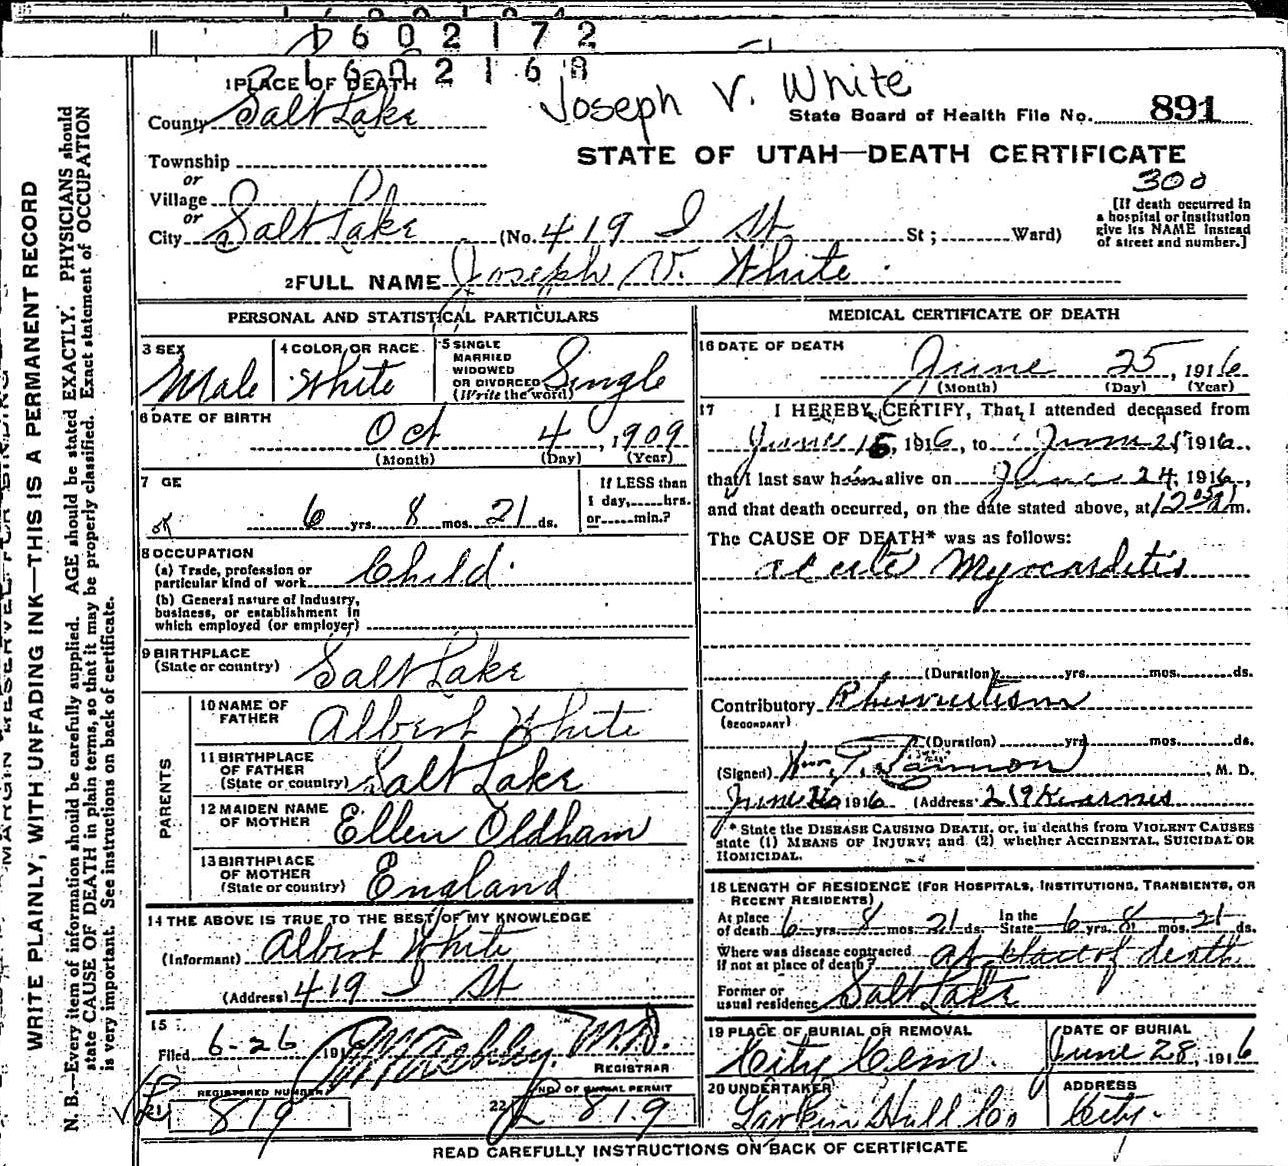 1602172
160216
Joseph V. White
1 PLACE OF DEATH
County Salt Lake
State Board of Health File No. 891
STATE OF UTAH—DEATH CERTIFICATE
300
Township
or
Village
or
City Salt Lake (No. 419 I St St; Ward)
[If death occurred in
a hospital or institution
give its NAME instead
of street and number.]
2 FULL NAME Joseph V. White
PERSONAL AND STATISTICAL PARTICULARS
3 SEX
Male
4 COLOR OR RACE
White
5 SINGLE
MARRIED
WIDOWED
OR DIVORCED
(Write the word)
Single
6 DATE OF BIRTH
Oct 4, 1909
(Month) (Day) (Year)
7 GE
6 yrs. 8 mos. 21 ds.
If LESS than
1 day, hrs.
or min.?
8 OCCUPATION
(a) Trade, profession or
particular kind of work Child
(b) General nature of Industry,
business, or establishment in
which employed (or employer)
9 BIRTHPLACE
(State or country) Salt Lake
PARENTS
10 NAME OF
FATHER Albert White
11 BIRTHPLACE
OF FATHER
(State or country) Salt Lake
12 MAIDEN NAME
OF MOTHER Ellen Oldham
13 BIRTHPLACE
OF MOTHER
(State or country) England
14 THE ABOVE IS TRUE TO THE BEST OF MY KNOWLEDGE
(Informant) Albert White
(Address) 419 I St
15
Filed 6-26 191 M.D.
REGISTRAR
REGISTERED NUMBER
21 819
22 NO OF BURIAL PERMIT
819
MEDICAL CERTIFICATE OF DEATH
16 DATE OF DEATH
June 25, 1916
(Month) (Day) (Year)
17 I HEREBY CERTIFY, That I attended deceased from
June 15, 1916, to June 25 1916,
that I last saw him alive on June 24, 1916,
and that death occurred, on the date stated above, at m.
The CAUSE OF DEATH* was as follows:
acute Myocarditis
(Duration) yrs. mos. ds.
Contributory Rheumatism
(SECONDARY)
(Duration) yrs. mos. ds.
(Signed) Wm. T. Cannon, M. D.
June 26 1916 (Address 219 Kearns
* State the DISEASE CAUSING DEATH, or, in deaths from VIOLENT CAUSES
state (1) MEANS OF INJURY; and (2) whether ACCIDENTAL, SUICIDAL OR
HOMICIDAL.
18 LENGTH OF RESIDENCE (FOR HOSPITALS, INSTITUTIONS, TRANSIENTS, OR
RECENT RESIDENTS)
At place
of death 6 yrs. 8 mos. 21 ds. In the State 6 yrs. 8 mos. 21 ds.
Where was disease contracted
If not at place of death? at place of death
Former or
usual residence Salt Lake
19 PLACE OF BURIAL OR REMOVAL
City Cem.
DATE OF BURIAL
June 28, 1916
20 UNDERTAKER
Larkin Hull Co
ADDRESS
City.
READ CAREFULLY INSTRUCTIONS ON BACK OF CERTIFICATE
WRITE PLAINLY, WITH UNFADING INK—THIS IS A PERMANENT RECORD
N. B.—Every item of information should be carefully supplied. AGE should be stated EXACTLY. PHYSICIANS should
state CAUSE OF DEATH in plain terms, so that it may be properly classified. Exact statement of OCCUPATION
is very important. See instructions on back of certificate.